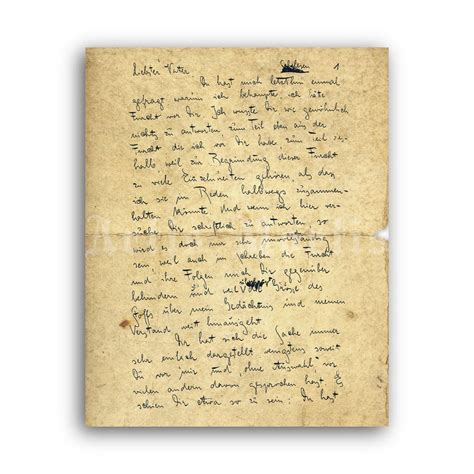 Liebster Vater 1
Du hast mich letzthin einmal
gefragt warum ich behaupte ich hätte
Furcht vor Dir. Ich wusste Dir wie gewöhnlich
nichts zu antworten zum Teil eben aus der
Furcht die ich vor Dir habe zum Teil des-
halb weil zur Begründung dieser Furcht
zu viele Einzelnheiten gehören als dass
ich sie im Reden halbwegs zusammen-
halten könnte Und wenn ich hier ver-
suche Dir schriftlich zu antworten so
wird es doch nur sehr unvollständig
sein, weil auch im Schreiben die Furcht
und ihre Folgen mich Dir gegenüber
behindern und weil Grösse des
Stoffs über mein Gedächtnis und meinen
Verstand weit hinausgeht.
Dir hat sich die Sache immer
sehr einfach dargestellt wenigstens soweit
Du vor mir und, ohne Auswahl, vor
vielen andern davon gesprochen hast Es
schien Dir etwa so zu sein: Du hast